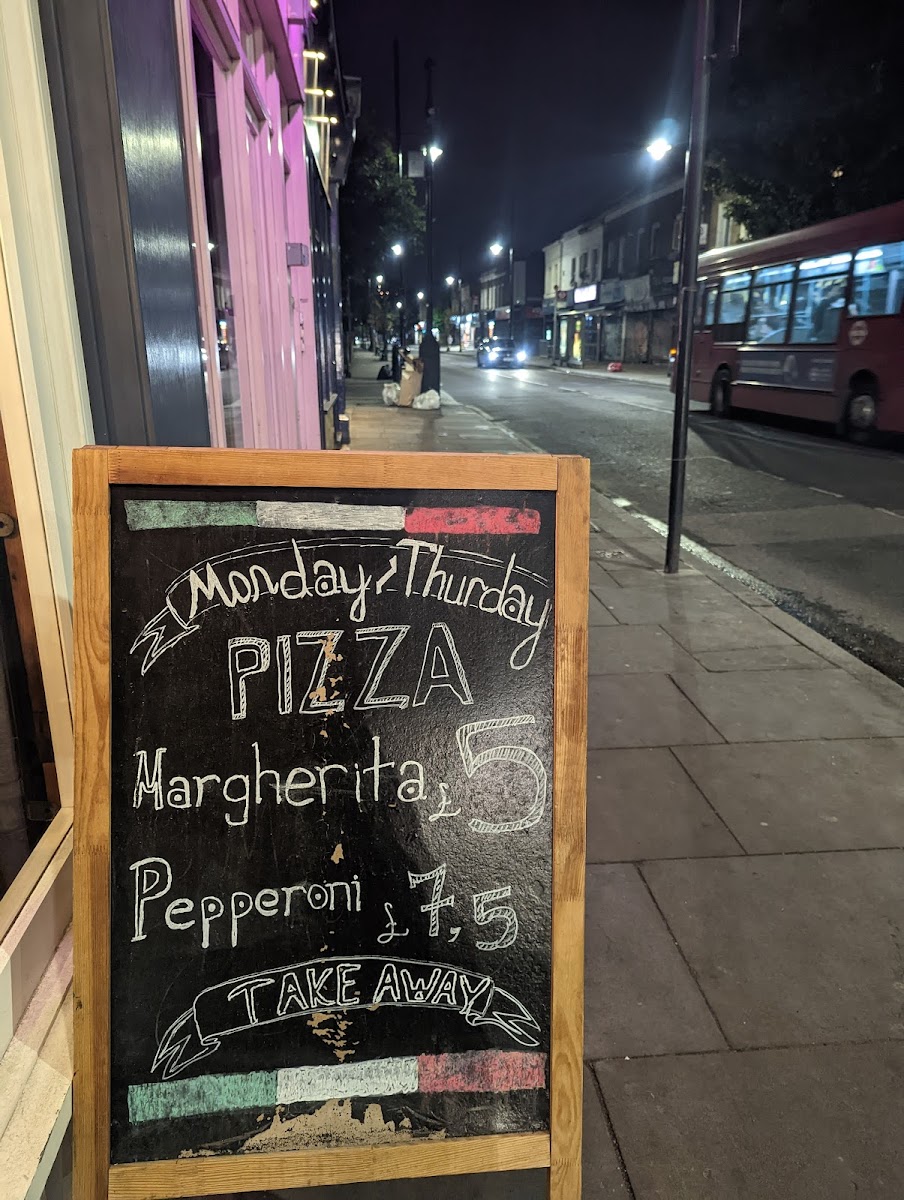 Monday/Thurday
PIZZA
Margherita £5
Pepperoni £7,5
TAKE AWAY